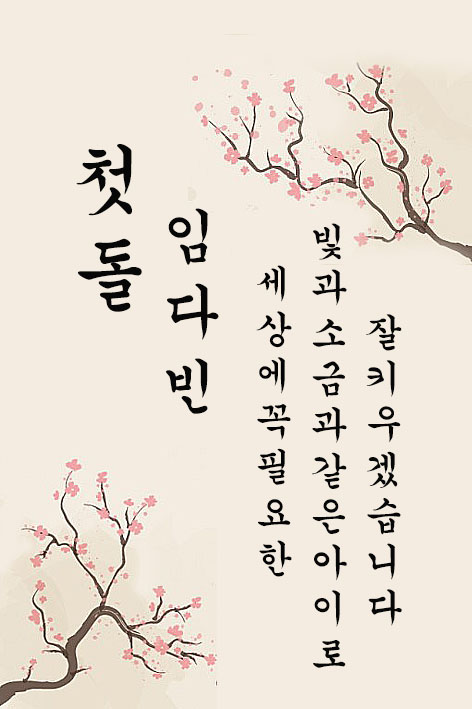 첫돌
임다빈
세상에꼭필요한
빛과소금과같은아이로
잘키우겠습니다